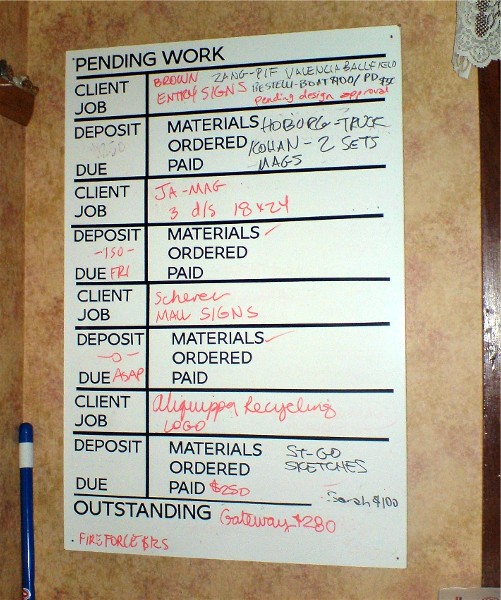 PENDING WORK
CLIENT BROWN ZANG-PIF VALENCIA BALLFIELD
JOB ENTRY SIGNS
pending design approval
DEPOSIT MATERIALS HOBURG-TRUCK
ORDERED KOHAN-2 SETS
DUE PAID MAGS
CLIENT JA-MAG
JOB 3 d/s 18x24
DEPOSIT MATERIALS ✓
-150- ORDERED
DUE FRI PAID
CLIENT Scherer
JOB MALL SIGNS
DEPOSIT MATERIALS ✓
-0- ORDERED
DUE ASAP PAID
CLIENT Aliquippa Recycling
JOB LOGO
DEPOSIT MATERIALS ST-GO
ORDERED SKETCHES
DUE PAID $250
Sarah $100
OUTSTANDING Gateway-$280
FIREFORCE $125